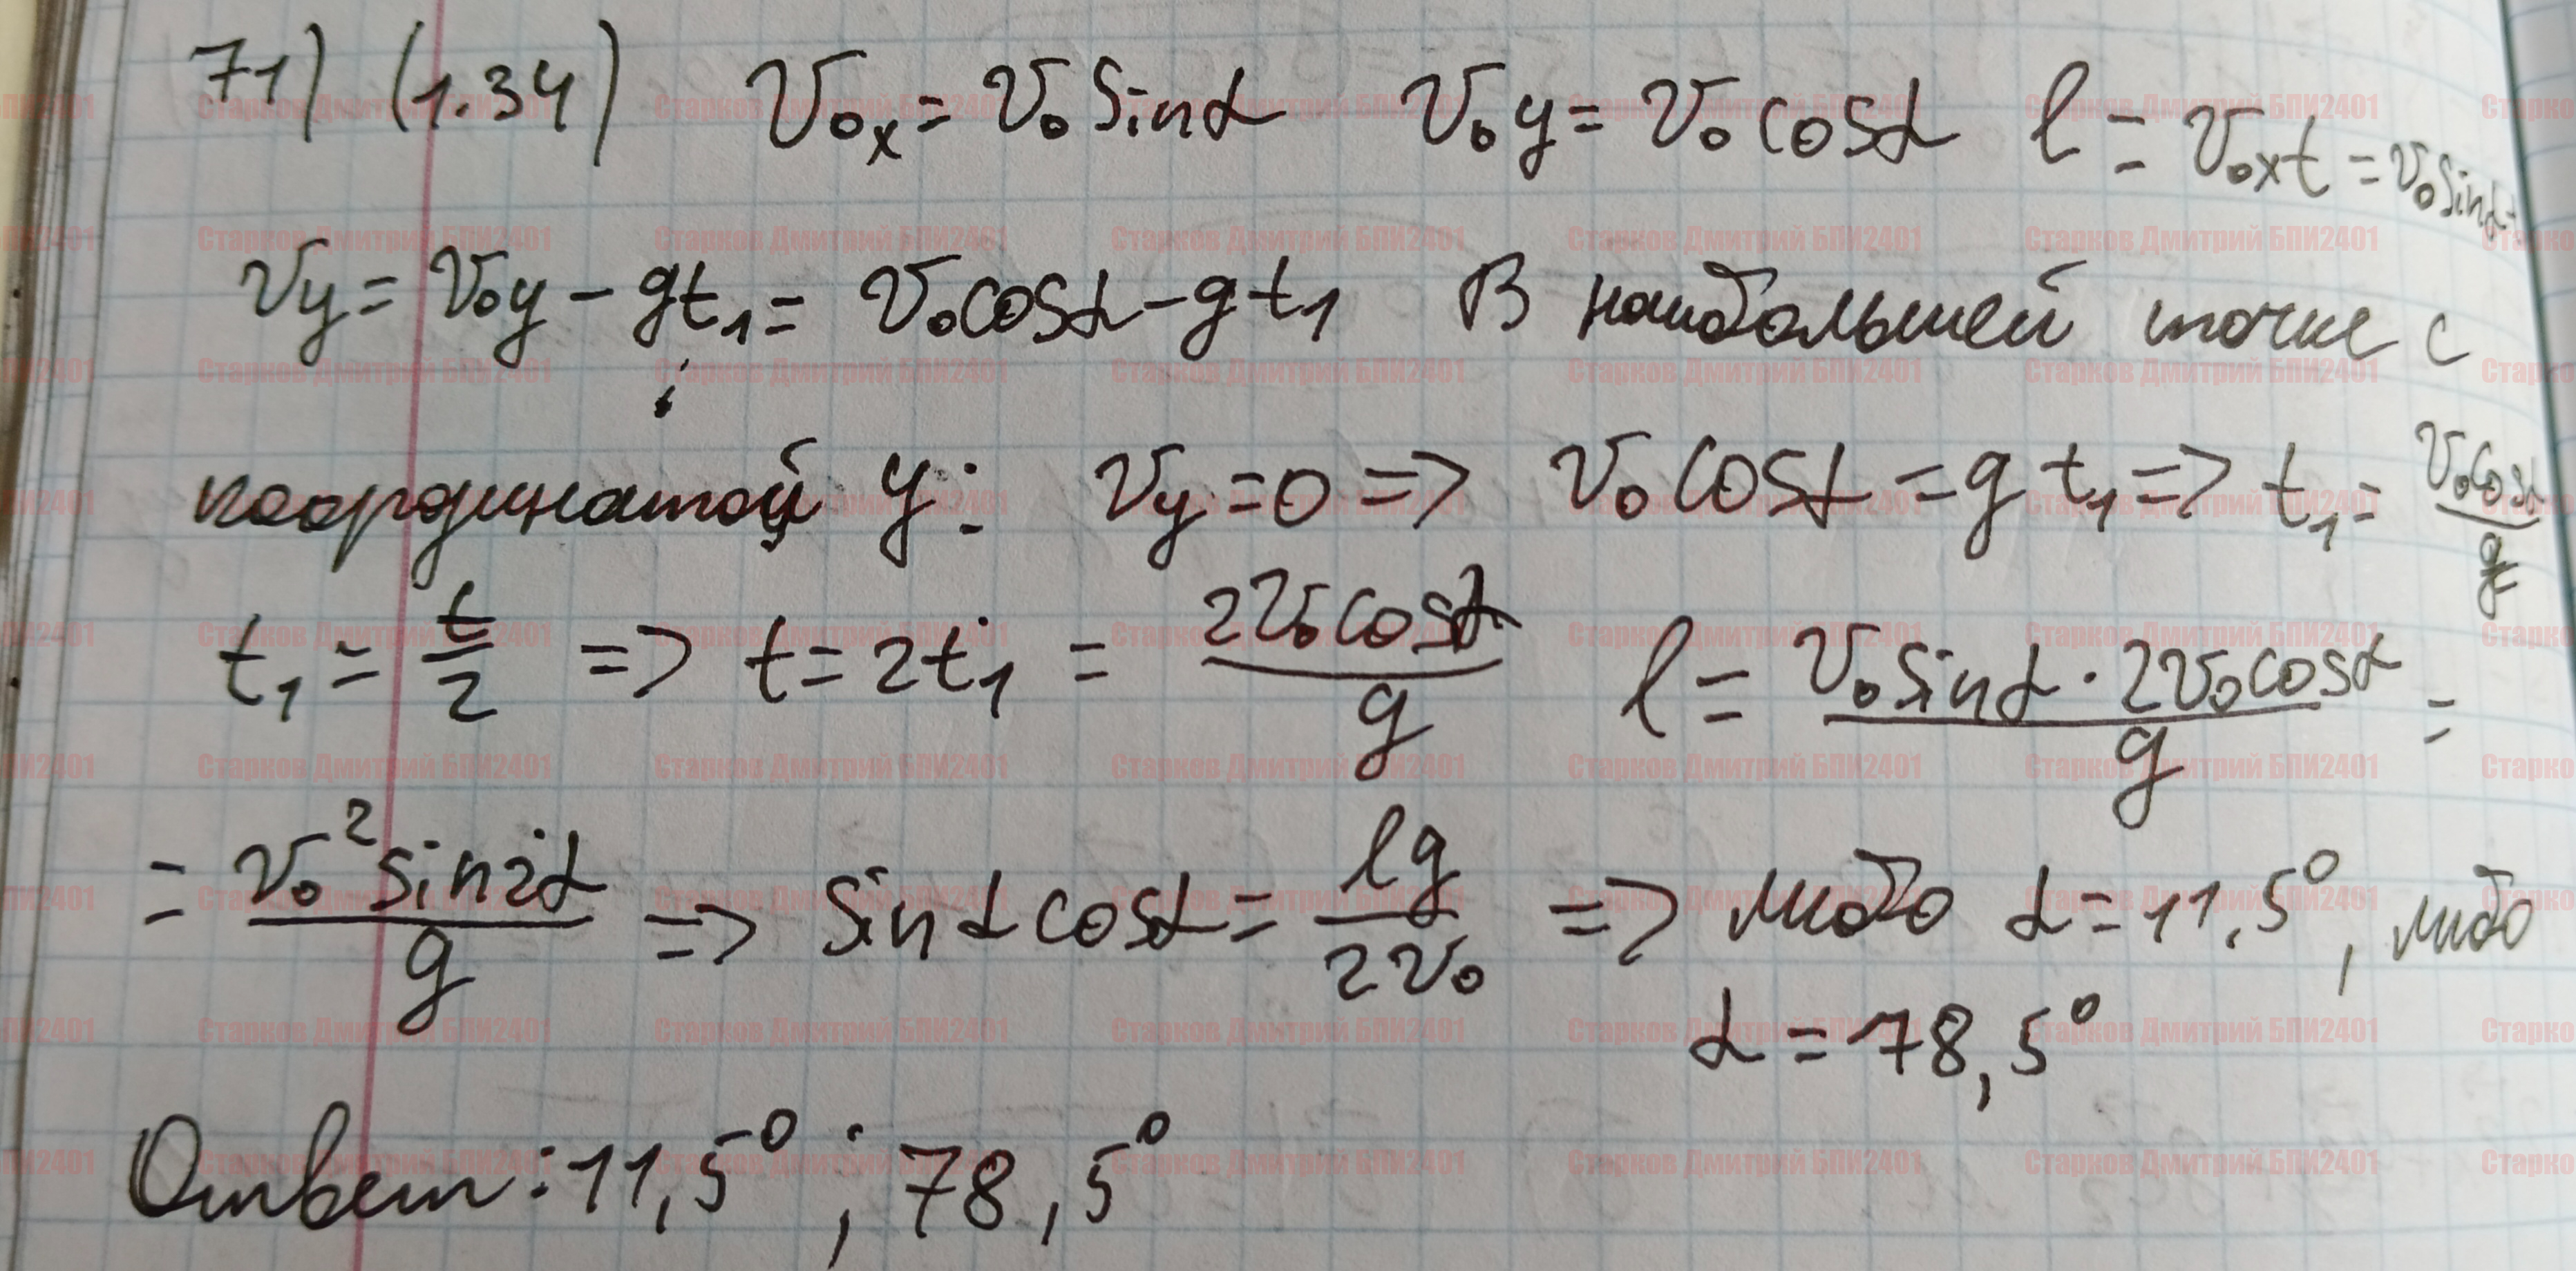 71) (1.34) V₀ₓ = V₀ sinα V₀y = V₀ cosα l = V₀ₓt = V₀ sinα·
Vy = V₀y - gt₁ = V₀cosα - gt₁ В наибольшей точке с
координатой y: Vy = 0 => V₀ cosα = g t₁ => t₁ = V₀cosα/g
t₁ = t/2 => t = 2t₁ = 2V₀cosα/g l = V₀ sinα · 2V₀cosα/g =
= V₀² sin2α/g => sinα cosα = lg/2V₀ => либо α = 11,5°, либо
α = 78,5°
Ответ: 11,5° ; 78,5°
Старков Дмитрий БПИ2401